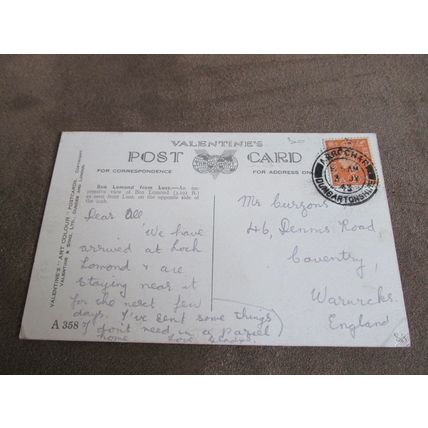 VALENTINE'S
POST CARD
FOR CORRESPONDENCE
FOR ADDRESS ONLY
Ben Lomond from Luss.—An
impressive view of Ben Lomond (3,192 ft.)
as seen from Luss, on the opposite side of
the loch.
Dear All
We have
arrived at Loch
Lomond & are
staying near it
for the next few
days. I've sent some things
I don't need in a parcel
home. Love
Mr Curzons
46, Dennis Road
Coventry
Warwicks.
England
ARROCHAR
AM
JY
43
DUMBARTONSHIRE
VALENTINE'S "ART COLOUR" POSTCARDS. COPYRIGHT
VALENTINE & SONS, LTD., DUNDEE AND LONDON
A 358